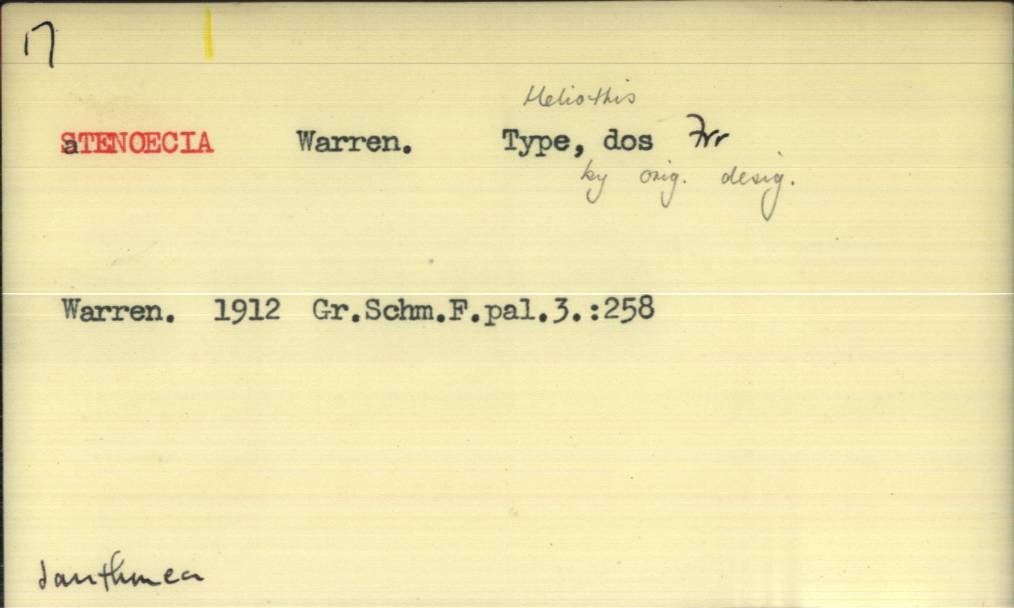 17
Heliothis
STENOECIA Warren. Type, dos Frr
by orig. desig.
Warren. 1912 Gr.Schm.F.pal.3.:258
Ianthinea